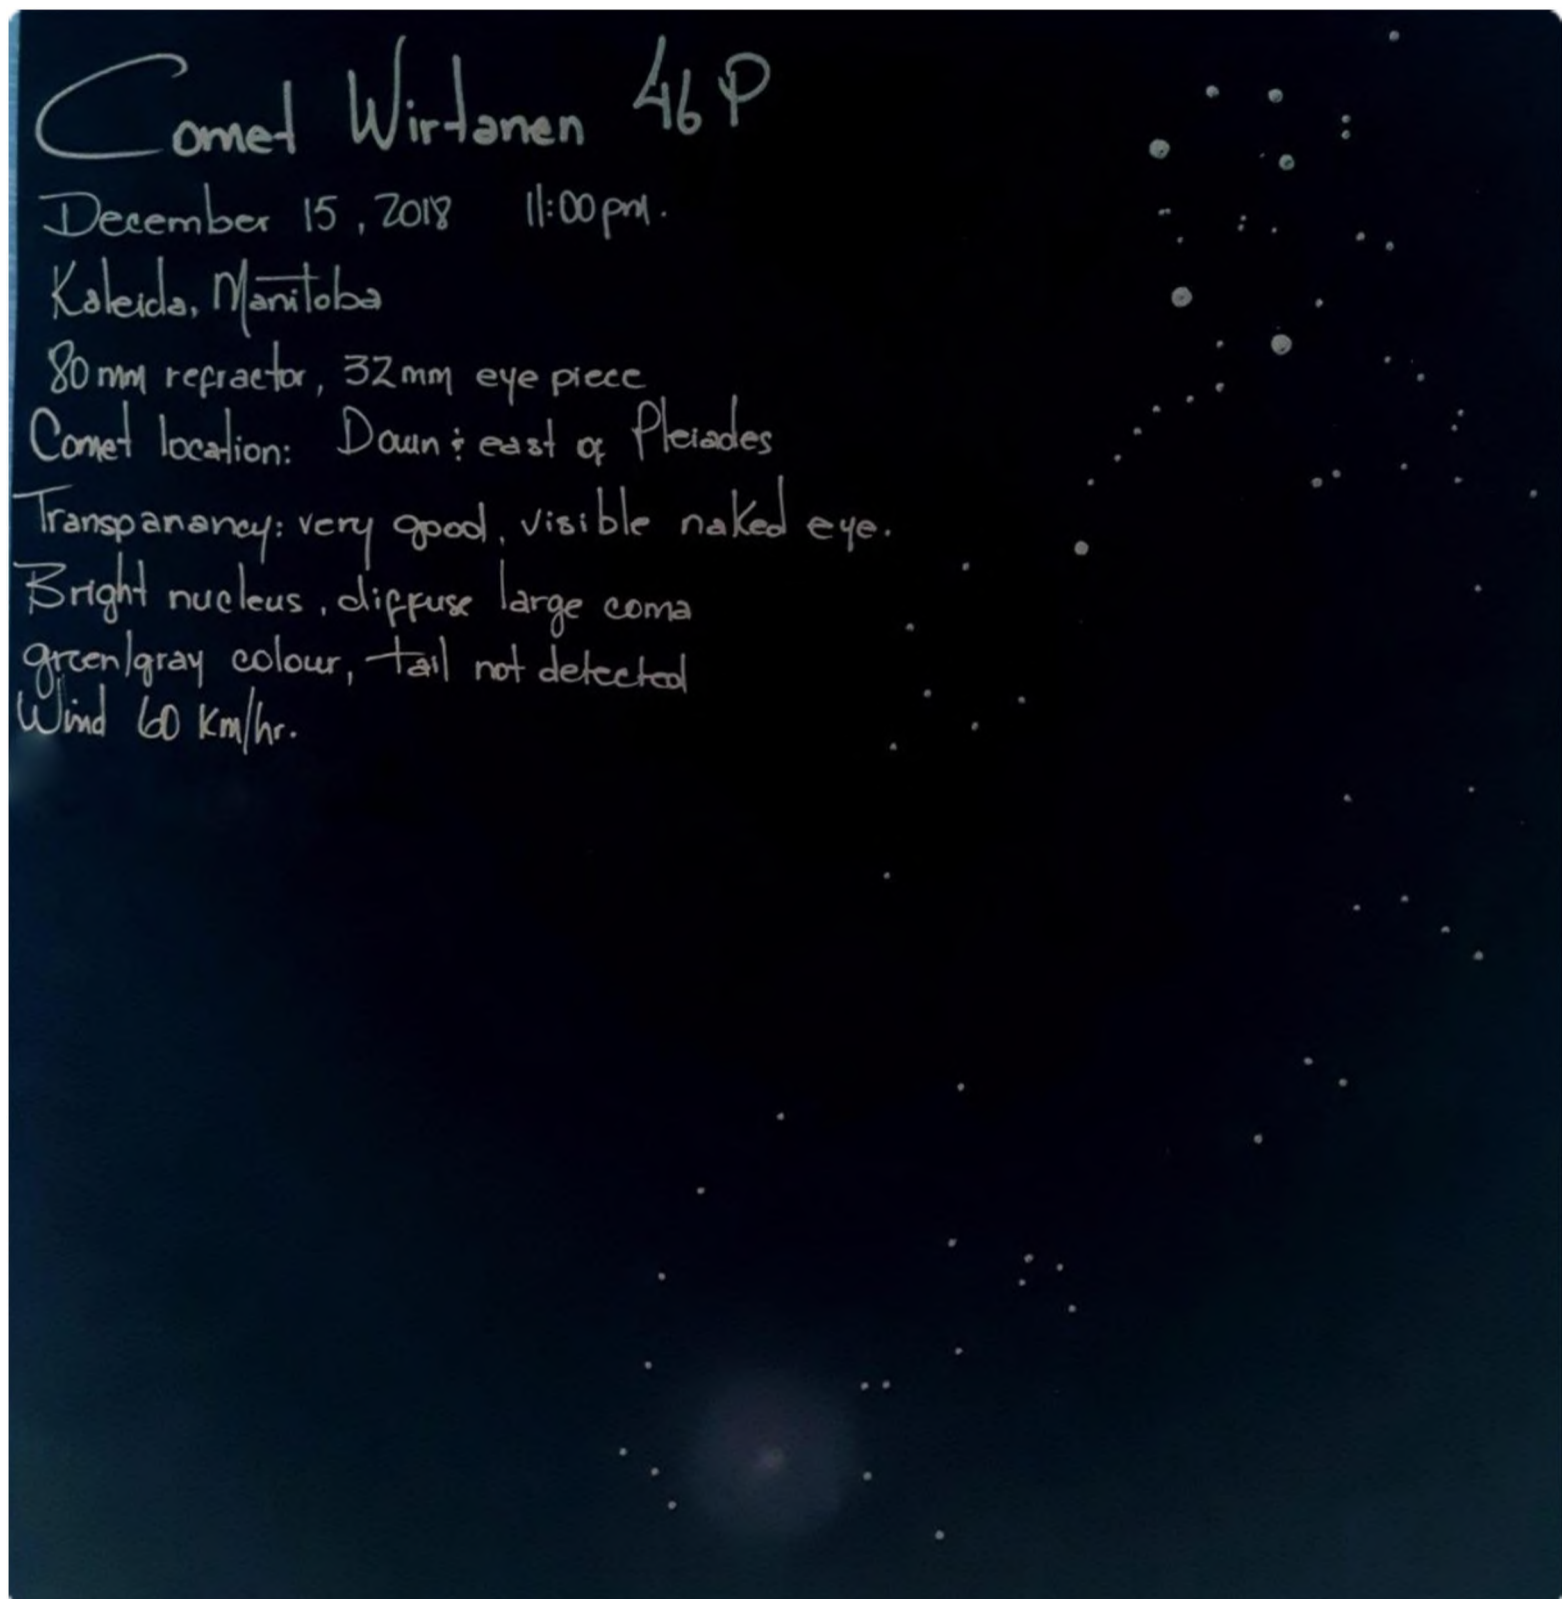 Comet Wirtanen 46P
December 15, 2018 11:00pm.
Kaleida, Manitoba
80mm refractor, 32mm eye piece
Comet location: Down & east of Pleiades
Transpanancy: very good, visible naked eye.
Bright nucleus, diffuse large coma
green/gray colour, tail not detected
Wind 60 Km/hr.